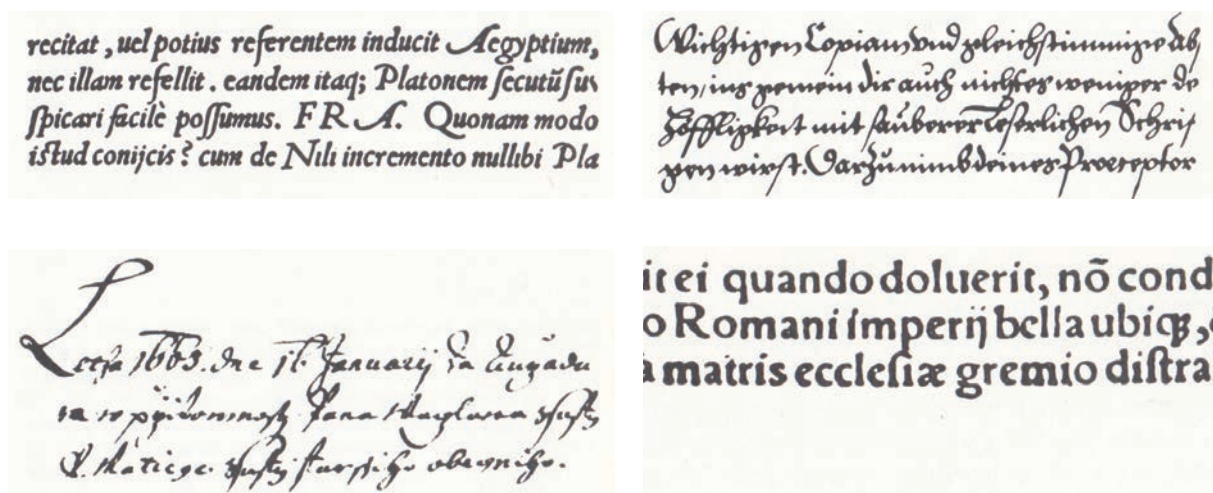 recitat , uel potius referentem inducit Aegyptium,
nec illam refellit . eandem itaq; Platonem ſecutũ ſus
ſpicari facilè poſſumus. F R A. Quonam modo
istud conijcis? cum de Nili incremento nullibi Pla
Wichtigen Copiam vnd gleichstimmige Ab
ten, ins gemein dir auch nichtes weniger de
Höffligkeit mit sauberer Leserlichen Schri
gen wirst. Darzu nimb deines Præceptor
Letha 1663. dne 16. Januarij za
Pana Waclawa
starssiho obecniho.
it ei quando doluerit, nõ cond
o Romani imperij bella ubiqꝫ,
a matris eccleſiæ gremio diſtra